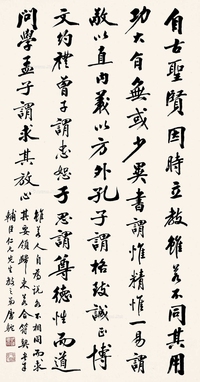 自古聖賢因時立教雖若不同其用
功大旨無或少異書謂惟精惟一易謂
敬以直內義以方外孔子謂格致誠正博
文約禮曾子謂忠恕子思謂尊德性而道
問學孟子謂求其放心
雖若人自為說不相同而求
其要領歸